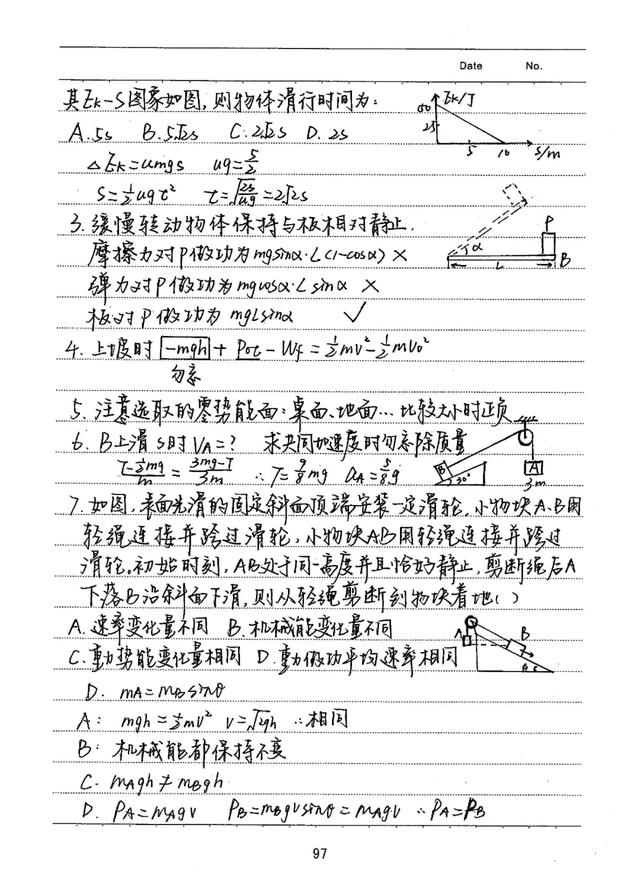 Date No.
其Ek-S图象如图,则物体滑行时间为:
A.5s B.5√2s C.2√2s D.2s
Ek/J
50
25
5 10 s/m
△Ek=umgs ug=5/2
S=½ugt² t=√(2s/ug)=2√2s
3.缓慢转动物体保持与板相对静止.
摩擦力对P做功为mgsinα·L(1-cosα) ×
弹力对P做功为mgcosα·Lsinα ×
板对P做功为 mgLsinα ✓
P
α
L
B
4.上坡时 -mgh + Pot - Wf = ½mv²-½mv₀²
勿忘
5.注意选取的零势能面:桌面、地面...比较大小时正负
6.B上滑S时VA=? 求共同加速度时勿忘除质量
(T-½mg)/m = (3mg-T)/3m ∴T=9/8mg aA=5/8g
B
30°
A
3m
7.如图,表面光滑的固定斜面顶端安装一定滑轮,小物块A、B用
轻绳连接并跨过滑轮,小物块AB用轻绳连接并跨过
滑轮。初始时刻,AB处于同一高度并且恰好静止,剪断绳后A
下落B沿斜面下滑,则从轻绳剪断刻物块着地( )
A.速率变化量不同 B.机械能变化量不同
C.重力势能变化量相同 D.重力做功平均速率相同
A
B
D. mA=mBsinθ
A: mgh=½mv² v=√2gh ∴相同
B: 机械能都保持不变
C. mAgh≠mBgh
D. PA=mAgv PB=mBgvsinθ=mAgv ∴PA=PB
97